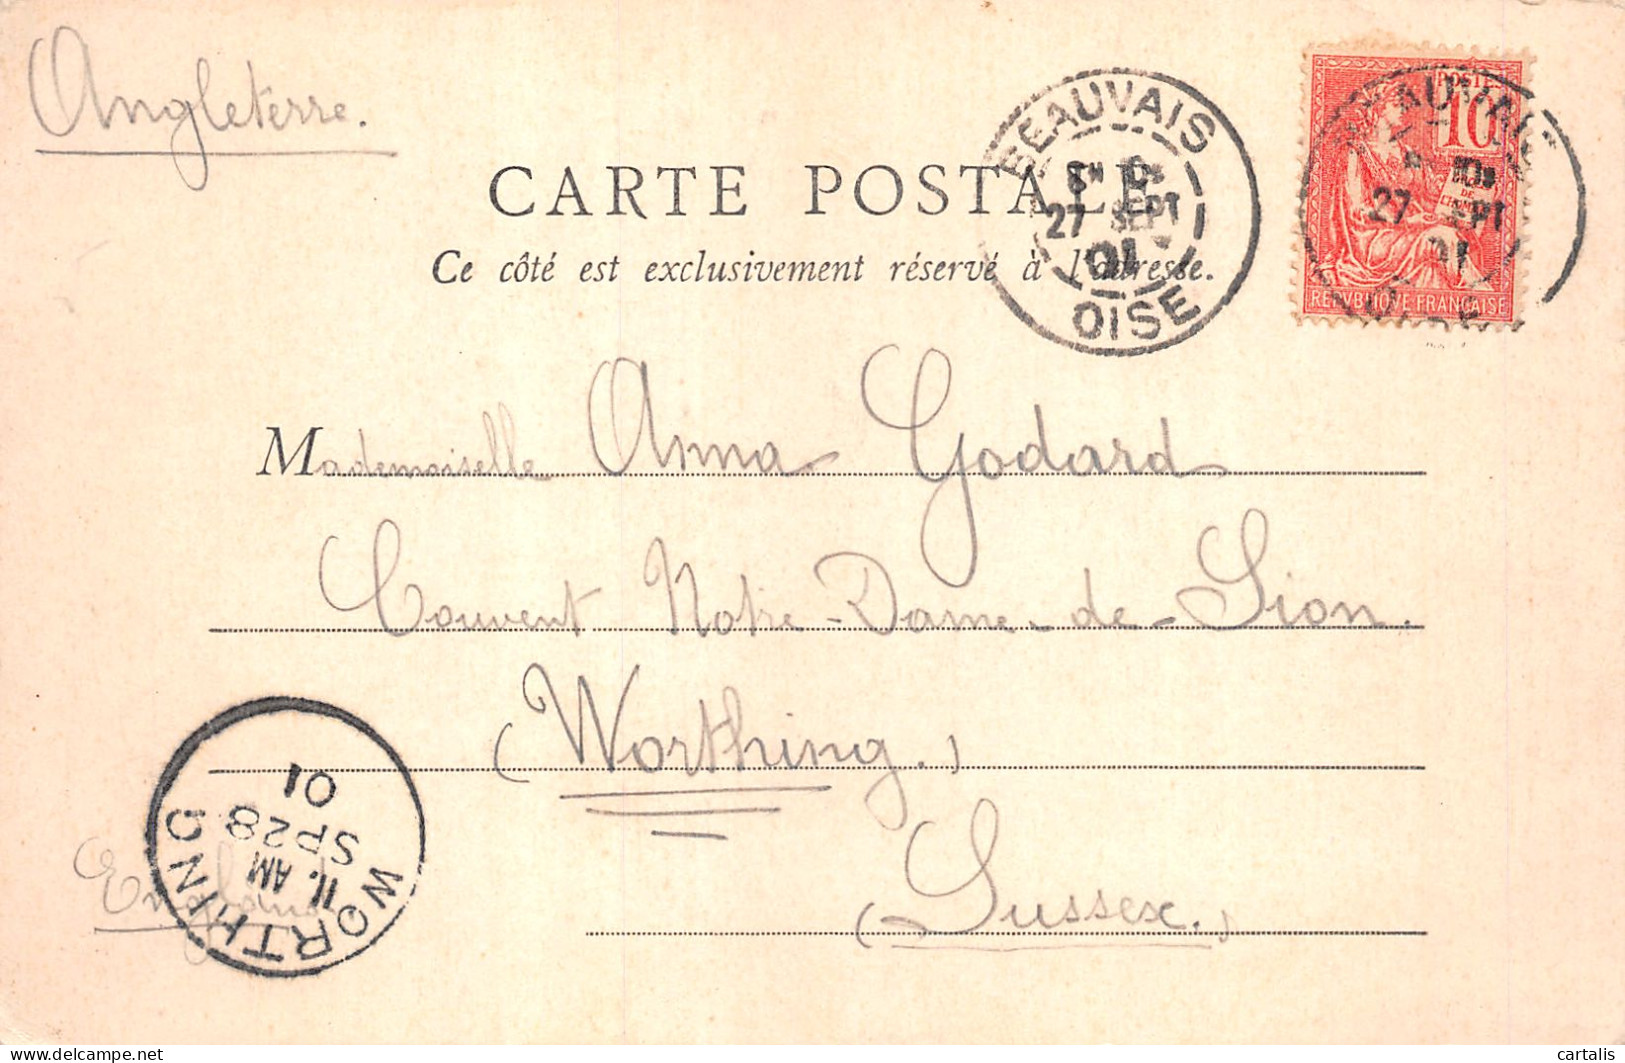 Angleterre.
CARTE POSTALE
Ce côté est exclusivement réservé à l'adresse.
BEAUVAIS
27 SEPT
01
OISE
POSTES
10
27 SEPT
01
REPVBLIQVE FRANÇAISE
Mademoiselle Anna Godard
Couvent Notre-Dame-de-Sion.
(Worthing.)
(Sussex.)
England
WORTHING
11. AM
SP 28
01
delcampe.net
cartalis